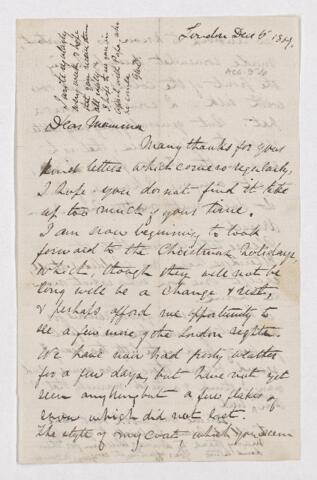 London Dec 6th 1849.
Dear Mamma
Many thanks for your
kind letters which come so regularly,
I hope you do not find it take
up too much of your time.
I am now beginning to look
forward to the Christmas holidays
which, though they will not be
long will be a change & rest,
& perhaps afford me opportunity to
see a few more of the London sights.
We have now had frosty weather
for a few days, but have not yet
seen anything but a few flakes of
snow which did not last.
The style of my coat which you seem
I write regularly
every week & hope
that you receive them
all safely.
I hope to see you in
April with Papa